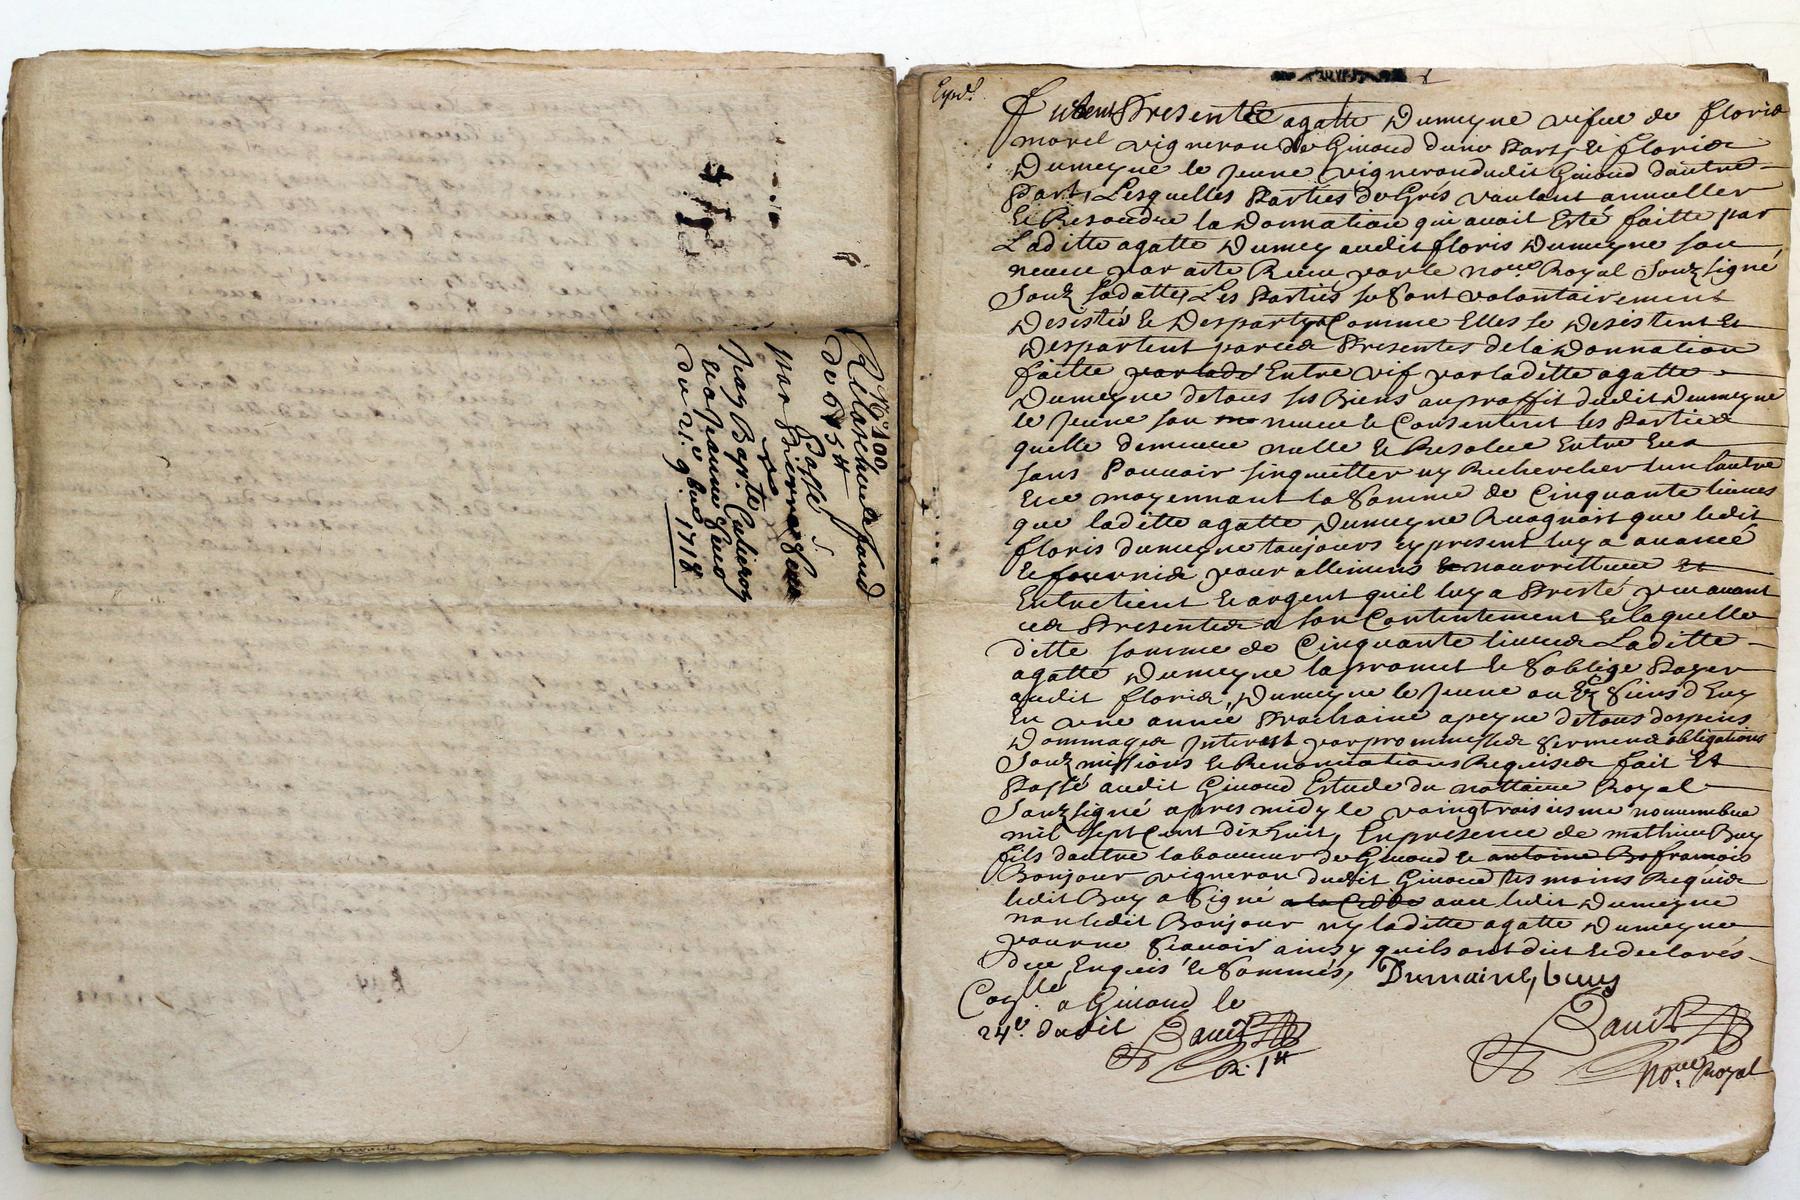 N.° 100
Relaschement de fond
De 65 ₶
Passé
par Pierre
Jean Bap.te
et a Jeanne
du 21.e 9bre 1718
Expd.
Furent Presente agatte Dumeyne vefue de floris
morel vigneron de Givord dune Part, et floris
Dumeyne le Jeune vigneron dudit Givord dautre
Part, Lesquelles Parties de Gres voulant annuller
Et Resoudre la Donnation qui avoit Esté faitte par
Laditte agatte Dumey audit floris Dumeyne son
neveu par acte Receu par le no.re Royal Souzsigné
Souz sa datte, Les Parties se sont volontairement
Desisté et Desparty Comme Elles se Desistent Et
Despartent par ces Presentes de la Donnation
faitte par lad Entre vif par laditte agatte
Dumeyne de tous ses Biens au proffit dudit Dumeyne
le Jeune son neveu et Consentent les Parties
quelle demeure nulle et Resolue Entre Eux
sans Pouvoir singuetter ny Rechercher lun lautre
Et ce moyennant la Somme de Cinquante livres
que laditte agatte Dumeyne Recognoist que ledit
floris dumeyne toujours cy present luy a avancé
et fournis pour alliments et nourriture et
Entretient et argent quil luy a Presté par avant
ces Presentes a son Contentement Et laquelle
ditte somme de Cinquante livres Laditte
agatte Dumeyne la promet et Soblige Payer
audit floris Dumeyne le Jeune ou Es Siens d huy
En une année Prochaine a peyne de tous despens
Dommages Interest par prommesses serment obligations
Souzmissions et Renontiations Requises fait Et
Passé audit Givord Estude du nottaire Royal
Souzsigné apres midy le vaingt trois iesme novembre
mil sept Cent dix huit, En présence de mathieu Buy
fils dautre laboureur de Givord et antoine francois
Bonjour vigneron dudit Givord tesmoins Requis
ledit Buy a Signé avec ledit Dumeyne
non ledit Bonjour ny laditte agatte Dumeyne
pour ne Scavoir ainsy quils ont dict et declarés
de ce Enquis et Sommés, Dumaine, buy
Co.llé a Givord le
24.e dudit
R. 1 ₶
No.re Royal